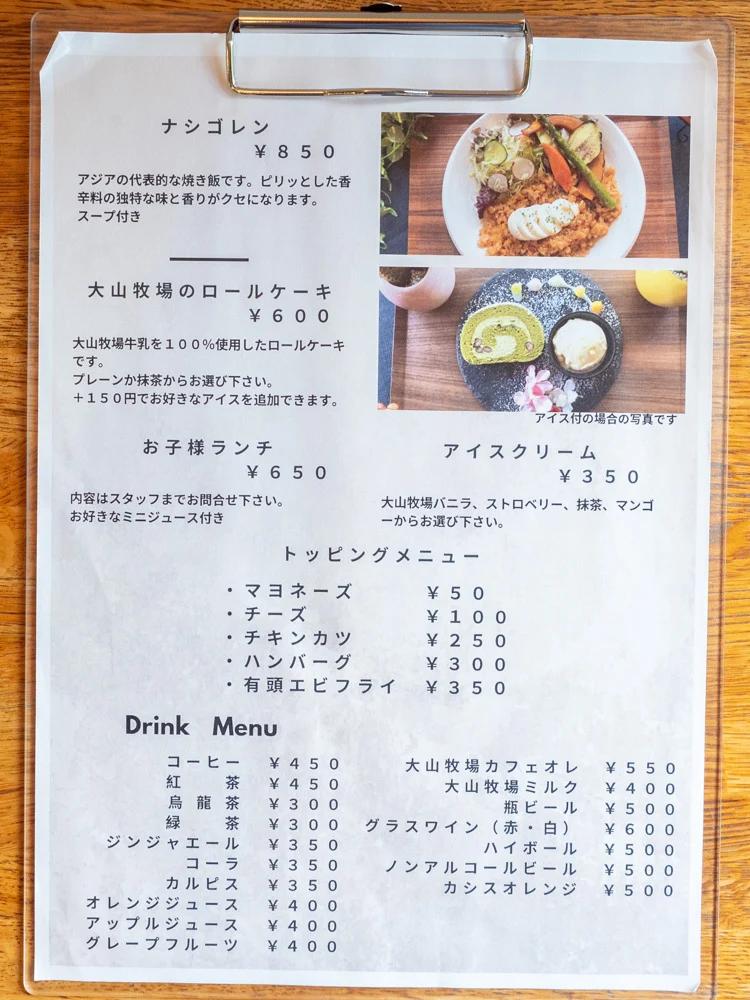 ナシゴレン
￥８５０
アジアの代表的な焼き飯です。ピリッとした香
辛料の独特な味と香りがクセになります。
スープ付き
大山牧場のロールケーキ
￥６００
大山牧場牛乳を１００％使用したロールケーキ
です。
プレーンか抹茶からお選び下さい。
＋１５０円でお好きなアイスを追加できます。
アイス付の場合の写真です
お子様ランチ
￥６５０
内容はスタッフまでお問合せ下さい。
お好きなミニジュース付き
アイスクリーム
￥３５０
大山牧場バニラ、ストロベリー、抹茶、マンゴ
ーからお選び下さい。
トッピングメニュー
・マヨネーズ ￥５０
・チーズ ￥１００
・チキンカツ ￥２５０
・ハンバーグ ￥３００
・有頭エビフライ ￥３５０
Drink Menu
コーヒー ￥４５０
紅茶 ￥４５０
烏龍茶 ￥３００
緑茶 ￥３００
ジンジャエール ￥３５０
コーラ ￥３５０
カルピス ￥３５０
オレンジジュース ￥４００
アップルジュース ￥４００
グレープフルーツ ￥４００
大山牧場カフェオレ ￥５５０
大山牧場ミルク ￥４００
瓶ビール ￥５００
グラスワイン（赤・白） ￥６００
ハイボール ￥５００
ノンアルコールビール ￥５００
カシスオレンジ ￥５００